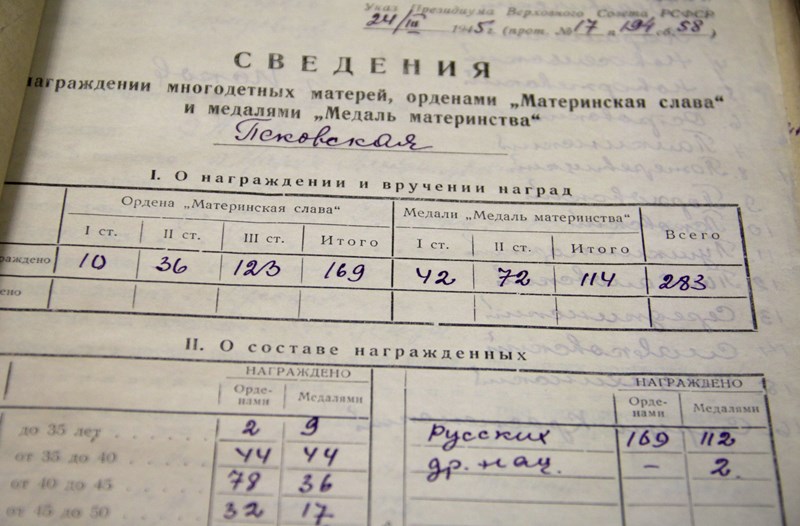 Указ Президиума Верховного Совета РСФСР
24/III 1945 г. (прот. № 17 п 194 сб. 58)
СВЕДЕНИЯ
награждении многодетных матерей, орденами „Материнская слава“
и медалями „Медаль материнства“
Псковская
I. О награждении и вручении наград
Ордена „Материнская слава“ Медали „Медаль материнства“ Всего
I ст. II ст. III ст. Итого I ст. II ст. Итого
раждено 10 36 123 169 42 72 114 283
ено
II. О составе награжденных
НАГРАЖДЕНО НАГРАЖДЕНО
Орде-нами Медалями Орде-нами Медалями
до 35 лет 2 9 Русских 169 112
от 35 до 40 44 44 др. нац. — 2
от 40 до 45 78 36
от 45 до 50 32 17